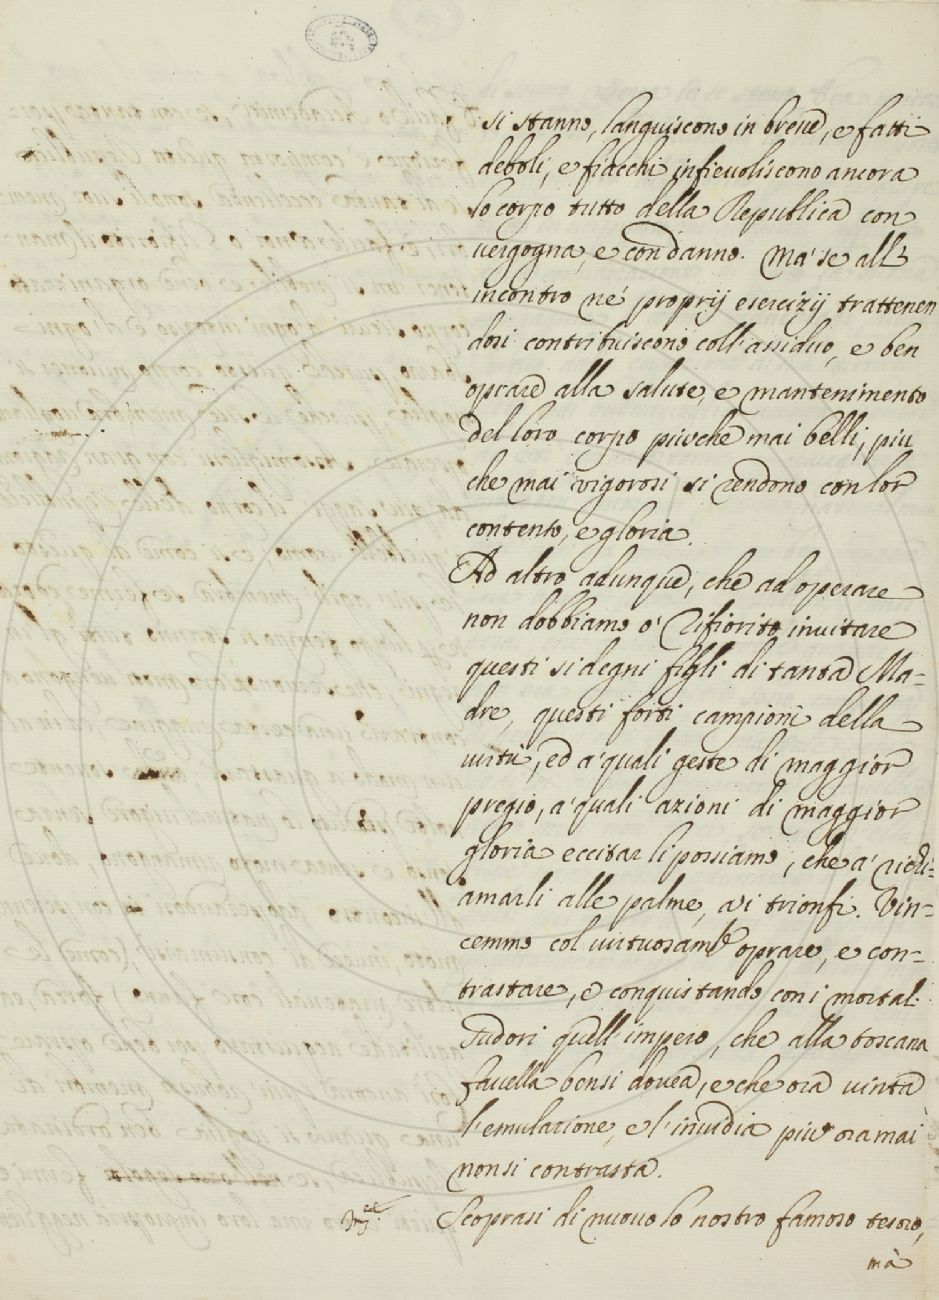 si stanno, languiscono in breve, e fatti
deboli, e fiacchi infievoliscono ancora
lo corpo tutto della Republica con
vergogna, e con danno. Ma' se all'
incontro ne' proprij esercizij trattenen
dosi contribuiscono coll'assiduo, e ben
oprare alla salute, e mantenimento
del loro corpo più che mai belli, più
che mai vigorosi si rendono con lor
contento, e gloria.
Ad altro adunque, che ad operare
non dobbiamo o' Rifiorito invitare
questi sì degni figli di tanta Ma-
dre, questi forti campioni della
virtù, ed a' quali geste di maggior
pregio, a' quali azioni di maggior
gloria eccitar li possiamo, che a' richi-
amarli alle palme, a i trionfi. Vin-
cemmo col virtuosam.te oprare, e con-
trastare, e conquistando con i mortal
sudori quell'impero, che alla toscana
favella bensi dovea, e che ora vinta
l'emulazione, e l'invidia più oramai
non si contrasta.
Scoprasi di nuovo lo nostro famoso tesoro,
mà